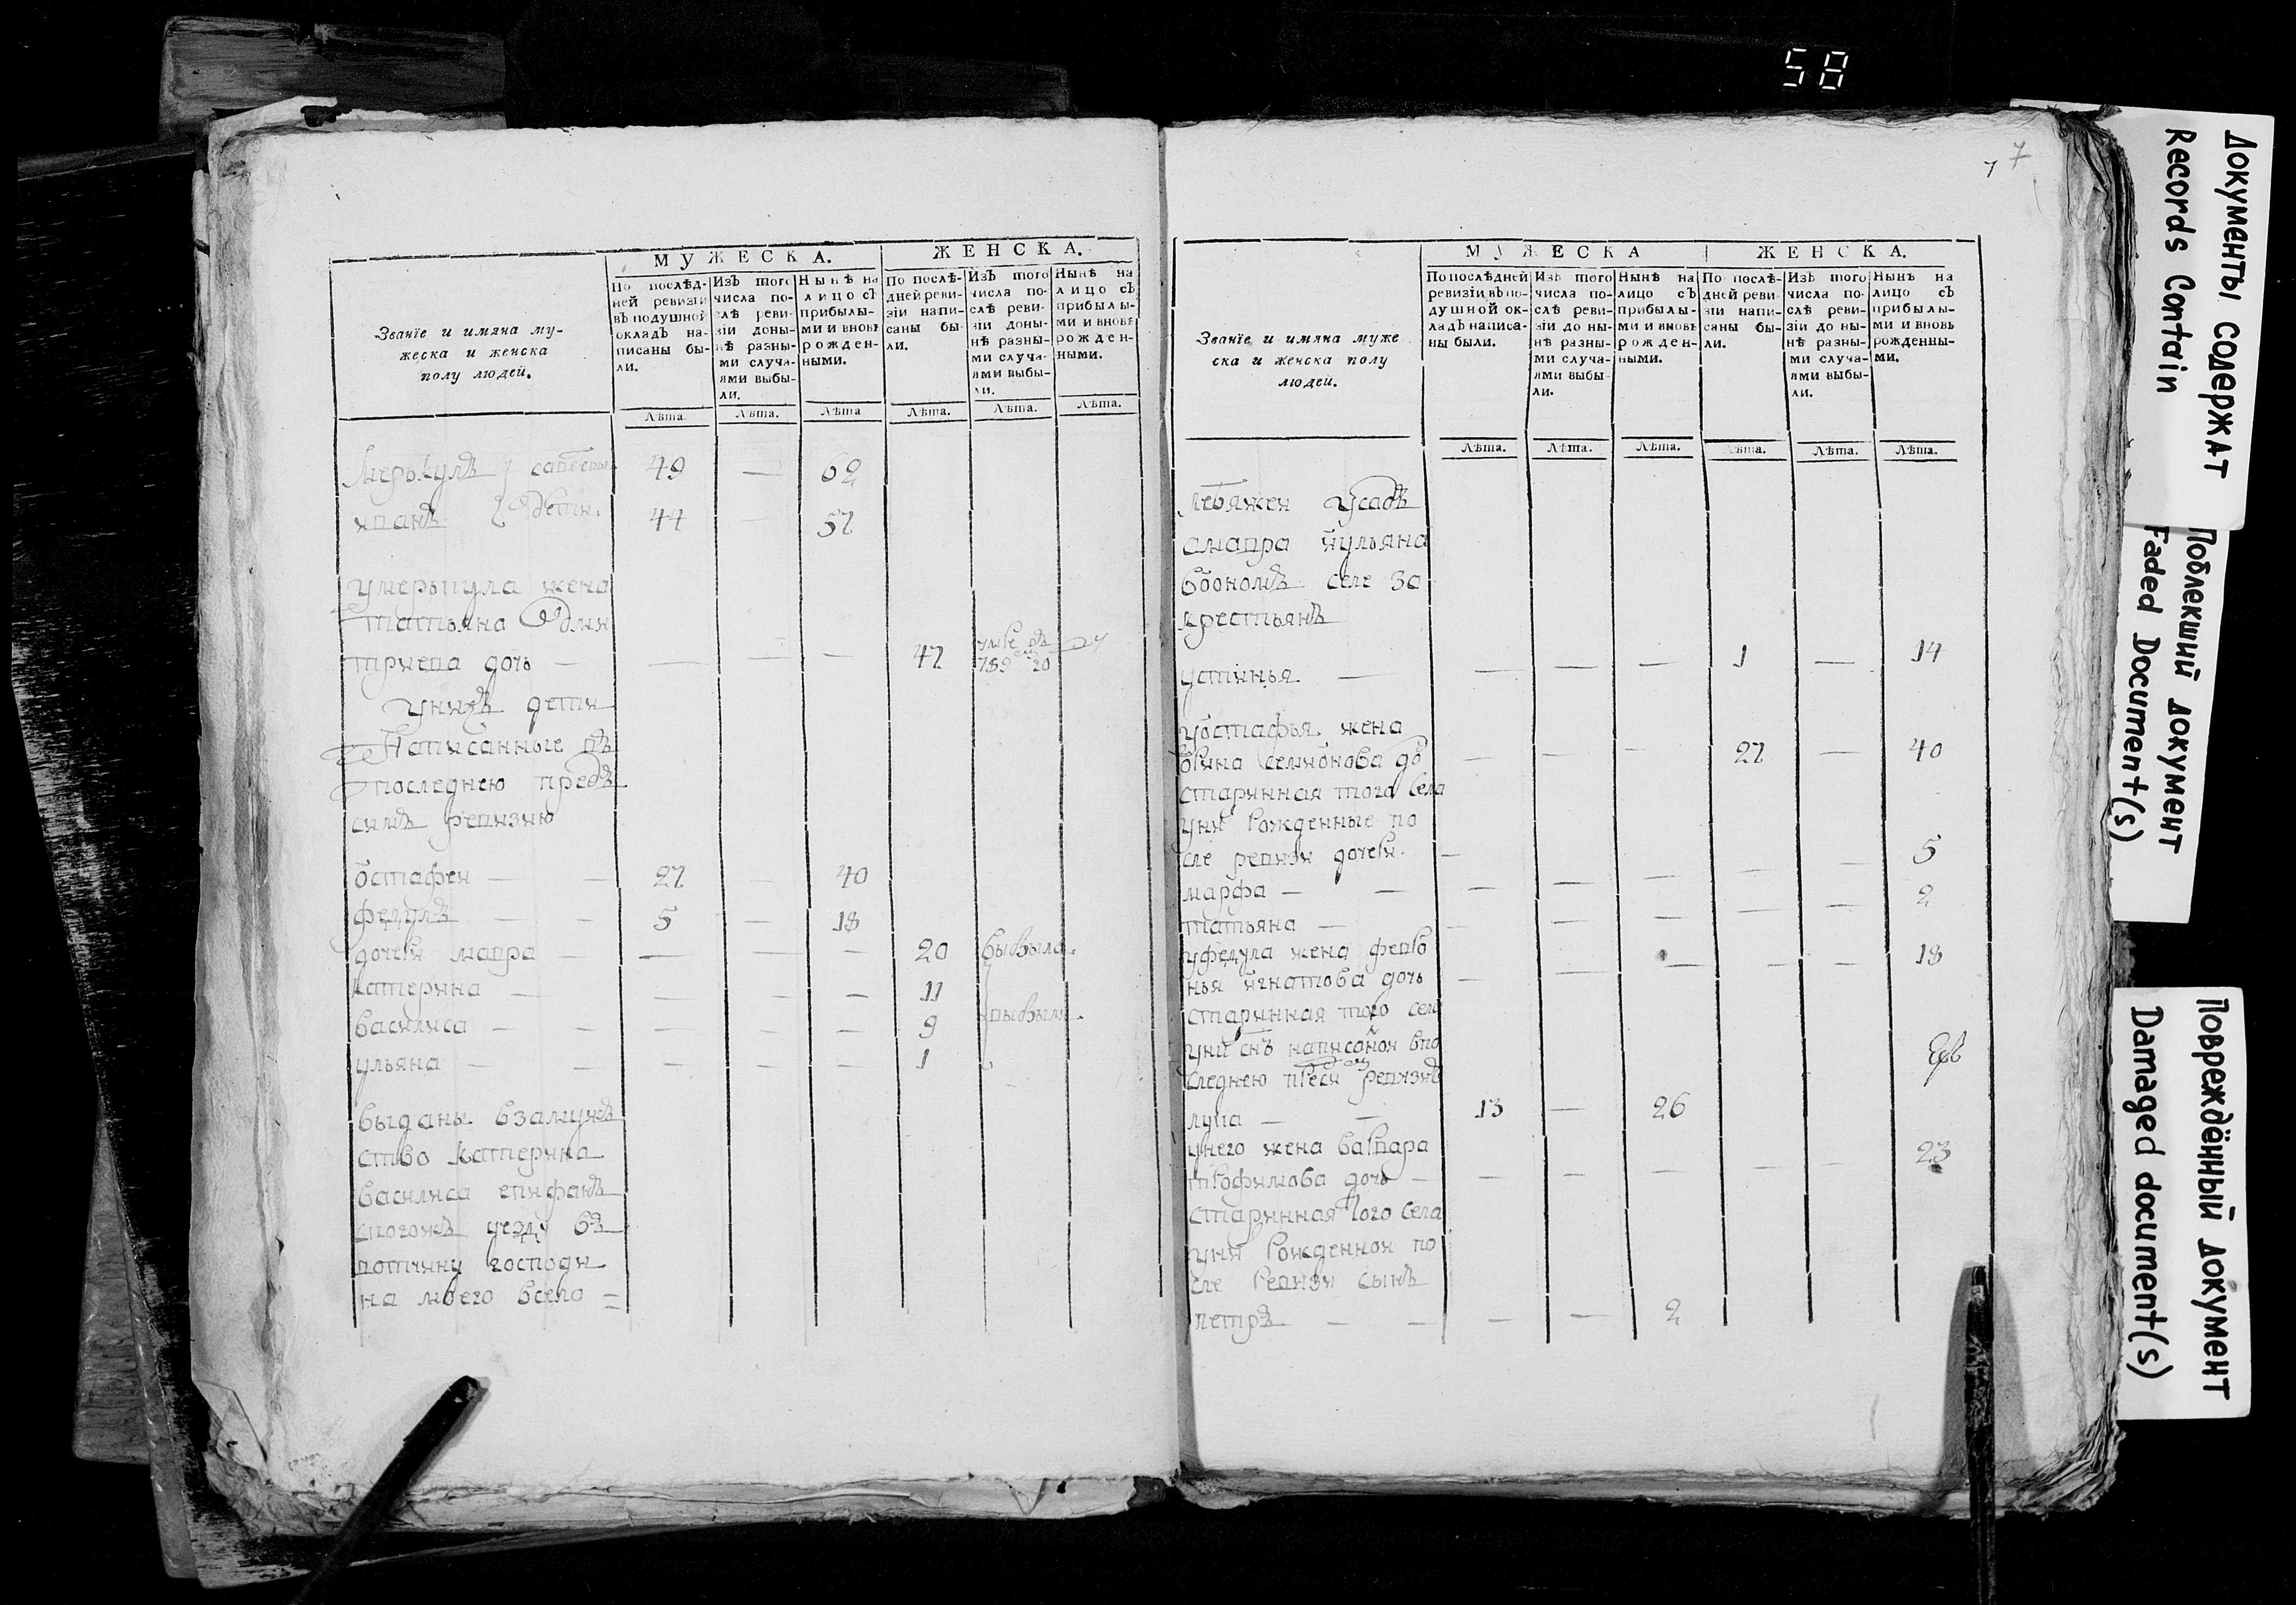 58
Документы содержат
Records Contain
Поблекший документ
Faded Document(s)
Повреждённый документ
Damaged document(s)
МУЖЕСКА. ЖЕНСКА.
Званїе и имяна му-
жеска и женска
полу людей.
По послѣд-
ней ревизіи
въ подушной
окладъ на-
писаны бы-
ли.
Изъ того
числа по-
слѣ реви-
зіи доны-
нѣ разны-
ми случа-
ями выбы-
ли.
Нынѣ на
лицо съ
прибылы-
ми и вновь
рожден-
ными.
По послѣ-
дней реви-
зіи напи-
саны бы-
ли.
Изъ того
числа по-
слѣ реви-
зіи доны-
нѣ разны-
ми случа-
ями выбы-
ли.
Нынѣ на
лицо съ
прибылы-
ми и вновь
рожден-
ными.
Лѣта. Лѣта. Лѣта Лѣта. Лѣта. Лѣта.
меркулъ 49 — 62
иванъ дети 44 — 57
умеркула жена
татьяна
триева дочь — — — — 47 789
унихъ дети
Написанные въ
последнею предъ
симъ ревизию
остафеи — — 27 — 40
федулъ — — 5 — 18
дочери мавра — — — — 20
катерина — — — — 11
василиса — — — — — 9
ульяна — — — — — 1
выданы взамуже
ство катерина
василиса
уезду въ
вотчину господи
на моего всело =
7 7
МУЖЕСКА ЖЕНСКА.
Званїе и имяна муже
ска и женска полу
людей.
По послѣдней
ревизіи въ по-
душной ок-
ладъ написа-
ны были.
Изъ того
числа по-
слѣ реви-
зіи до ны-
нѣ разны-
ми случа-
ями выбы-
ли.
Нынѣ на
лицо съ
прибылы-
ми и вновь
рожден-
ными.
По послѣ-
дней реви-
зіи напи-
саны бы-
ли.
Изъ того
числа по-
слѣ реви-
зіи до ны-
нѣ разны-
ми случа-
ями выбы-
ли.
Нынѣ на
лицо съ
прибылы-
ми и вновь
рожденны-
ми.
Лѣта. Лѣта. Лѣта. Лѣта. Лѣта. Лѣта.
амавра иульяна
селе за
крестьянъ
устинья — — — — 1 — 14
уостафья жена
семионова до — — — 27 — 40
старинная того села
уни рожденные по
сле ревизи дочери — — — — — 5
марфа — — — — — — — 2
татьяна —
уфедула жена 18
игнатова дочь — — — — —
старинная того села
уни снъ написаной впо
следнею ревизию
лука — — 13 — 26
унего жена варвара 23
трофимова дочь — — — — — —
старинная того села
уни рожденнои по
сле ревизи сынъ
петръ — — — — 2